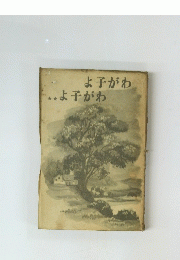 わが子よ
わが子よ‥